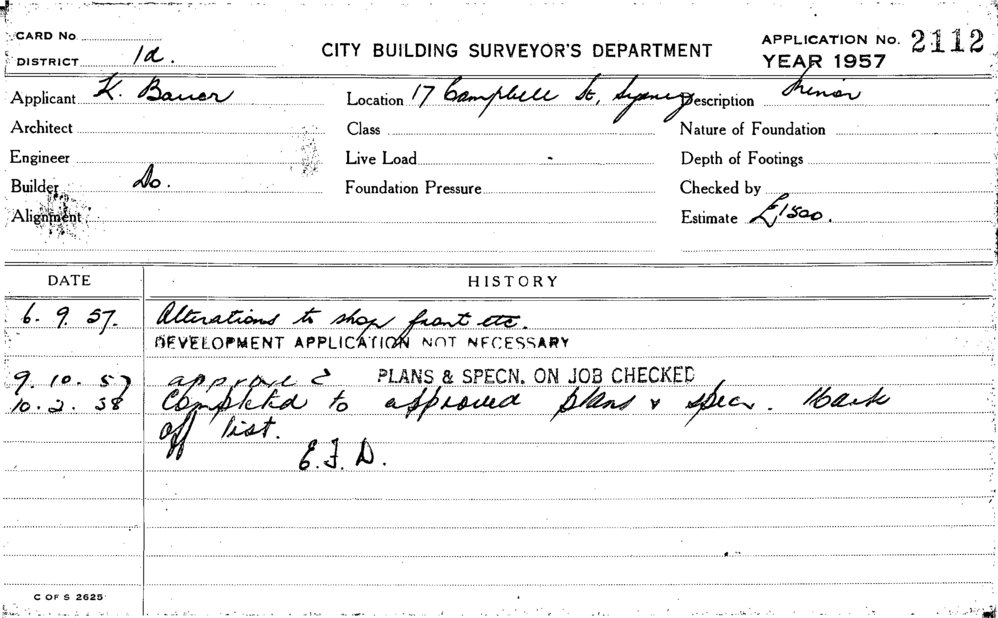 CARD No
DISTRICT 1d.
CITY BUILDING SURVEYOR'S DEPARTMENT
APPLICATION No. 2112
YEAR 1957
Applicant K. Bauer
Location 17 Campbell St, Sydney
Description Minor
Architect
Class
Nature of Foundation
Engineer
Live Load
Depth of Footings
Builder Do.
Foundation Pressure
Checked by
Alignment
Estimate £1500.
DATE HISTORY
6. 9. 57. Alterations to shop front etc.
DEVELOPMENT APPLICATION NOT NECESSARY
9. 10. 57 approved PLANS & SPECN. ON JOB CHECKED
10. 2. 58 Completed to approved plans & specn. Mark
off list.
E.J.D.
C OF S 2625